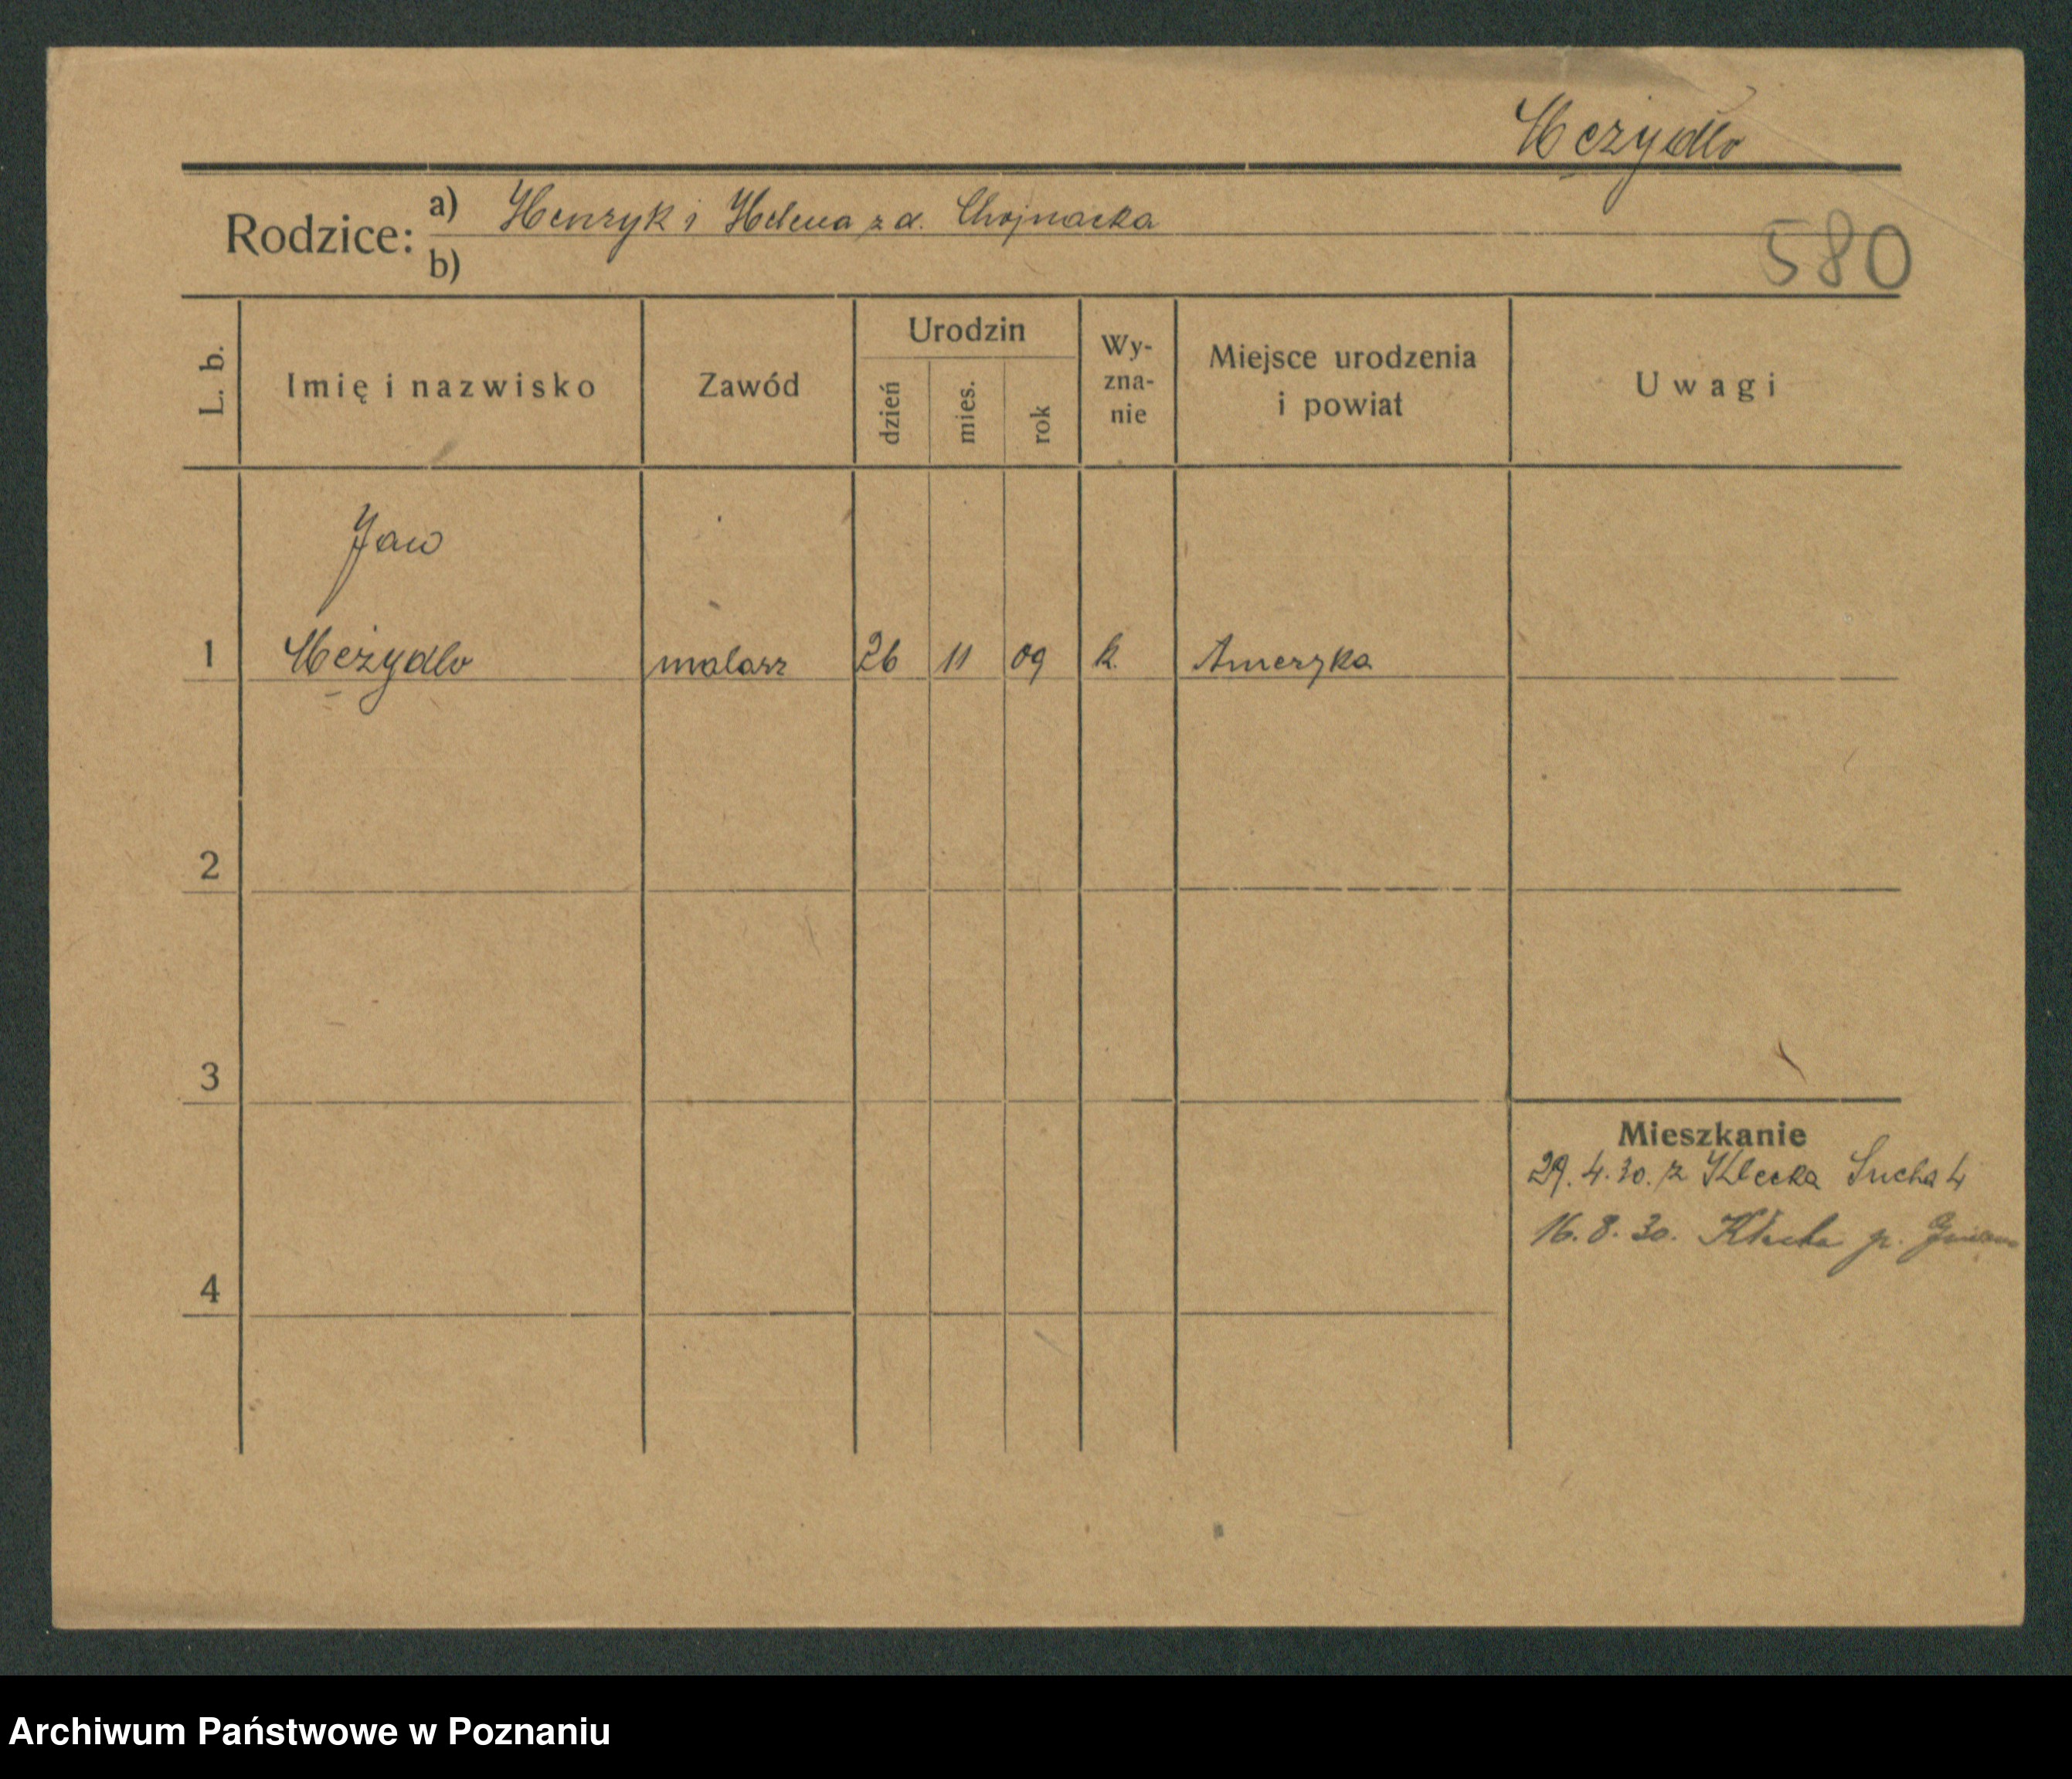 Meżydło
Rodzice: a) Henryk i Helena z d. Chojnacka
580
b)
L. b. Imię i nazwisko Zawód Urodzin dzień mies. rok Wy-zna-nie Miejsce urodzenia i powiat Uwagi
Jan
1 Meżydło malarz 26 11 09 k. Ameryka
2
3
Mieszkanie
29. 4. 30. z Klecka Sucha 4
16. 8. 30. p.
4
Archiwum Państwowe w Poznaniu